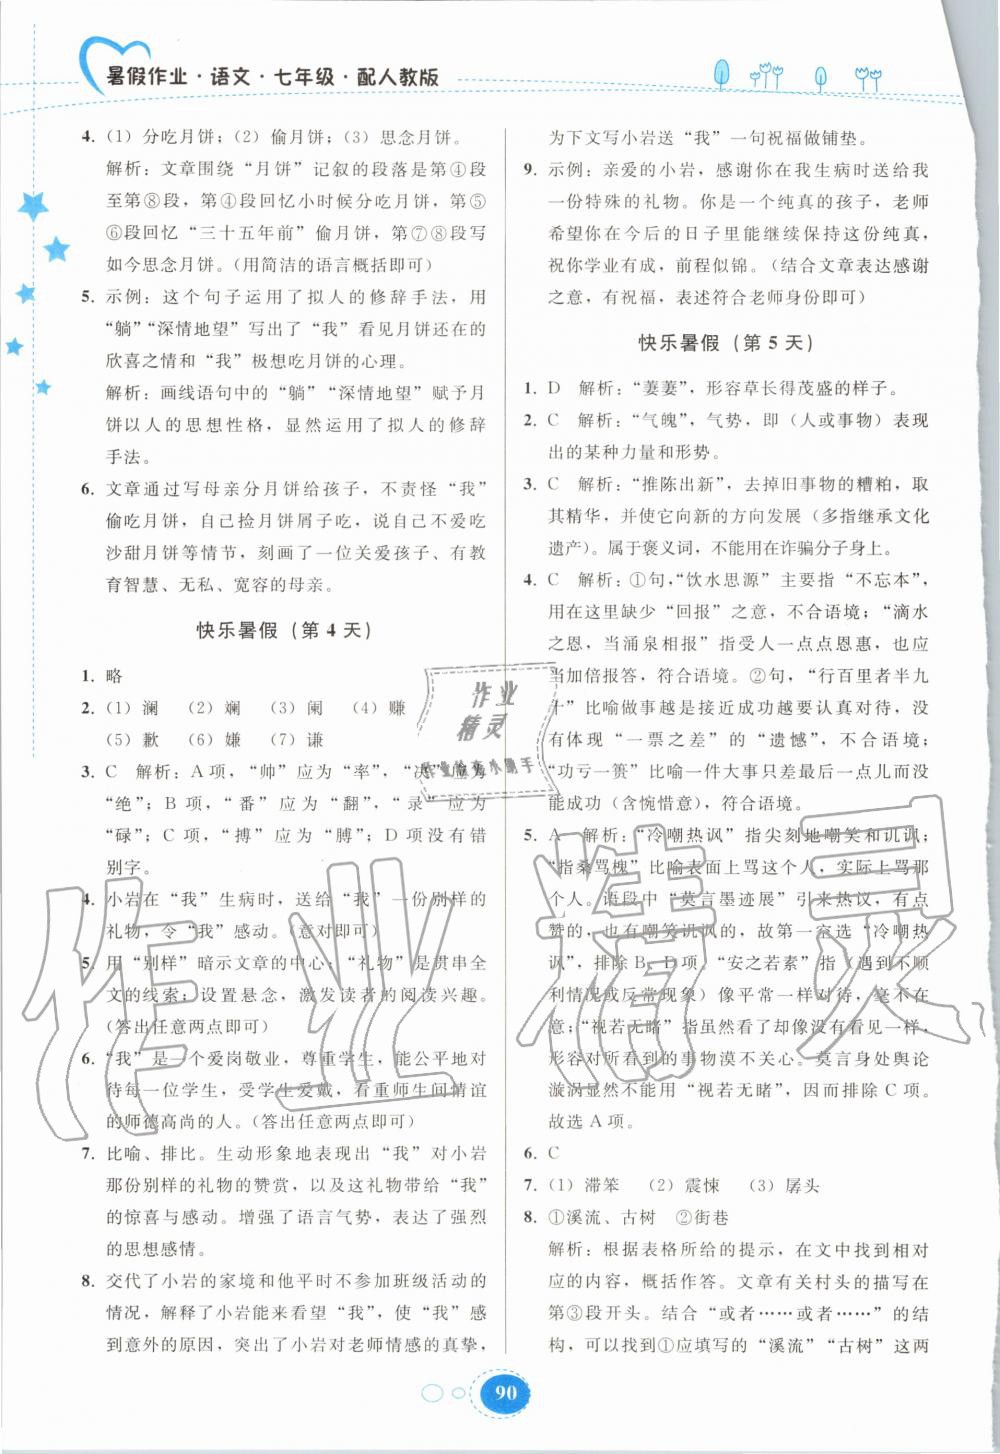 暑假作业·语文·七年级·配人教版
4. (1) 分吃月饼；(2) 偷月饼；(3) 思念月饼。
解析：文章围绕“月饼”记叙的段落是第④段
至第⑧段，第④段回忆小时候分吃月饼，第⑤
⑥段回忆“三十五年前”偷月饼，第⑦⑧段写
如今思念月饼。（用简洁的语言概括即可）
5. 示例：这个句子运用了拟人的修辞手法，用
“躺”“深情地望”写出了“我”看见月饼还在的
欣喜之情和“我”极想吃月饼的心理。
解析：画线语句中的“躺”“深情地望”赋予月
饼以人的思想性格，显然运用了拟人的修辞
手法。
6. 文章通过写母亲分月饼给孩子，不责怪“我”
偷吃月饼，自己捡月饼屑子吃，说自己不爱吃
沙甜月饼等情节，刻画了一位关爱孩子、有教
育智慧、无私、宽容的母亲。
快乐暑假（第 4 天）
1. 略
2. (1) 澜 (2) 斓 (3) 阑 (4) 赚
(5) 歉 (6) 嫌 (7) 谦
3. C 解析：A项，“帅”应为“率”，“决”应为
“绝”；B项，“番”应为“翻”，“录”应为
“碌”；C项，“搏”应为“膊”；D项没有错
别字。
4. 小岩在“我”生病时，送给“我”一份别样的
礼物，令“我”感动。（意对即可）
5. 用“别样”暗示文章的中心；“礼物”是贯串全
文的线索；设置悬念，激发读者的阅读兴趣。
（答出任意两点即可）
6. “我”是一个爱岗敬业，尊重学生，能公平地对
待每一位学生，受学生爱戴，看重师生间情谊
的师德高尚的人。（答出任意两点即可）
7. 比喻、排比。生动形象地表现出“我”对小岩
那份别样的礼物的赞赏，以及这礼物带给“我”
的惊喜与感动。增强了语言气势，表达了强烈
的思想感情。
8. 交代了小岩的家境和他平时不参加班级活动的
情况，解释了小岩能来看望“我”，使“我”感
到意外的原因，突出了小岩对老师情感的真挚，
为下文写小岩送“我”一句祝福做铺垫。
9. 示例：亲爱的小岩，感谢你在我生病时送给我
一份特殊的礼物。你是一个纯真的孩子，老师
希望你在今后的日子里能继续保持这份纯真，
祝你学业有成，前程似锦。（结合文章表达感谢
之意，有祝福，表述符合老师身份即可）
快乐暑假（第 5 天）
1. D 解析：“萋萋”，形容草长得茂盛的样子。
2. C 解析：“气魄”，气势，即（人或事物）表现
出的某种力量和形势。
3. C 解析：“推陈出新”，去掉旧事物的糟粕，取
其精华，并使它向新的方向发展（多指继承文化
遗产）。属于褒义词，不能用在诈骗分子身上。
4. C 解析：①句，“饮水思源”主要指“不忘本”，
用在这里缺少“回报”之意，不合语境；“滴水
之恩，当涌泉相报”指受人一点点恩惠，也应
当加倍报答，符合语境。②句，“行百里者半九
十”比喻做事越是接近成功越要认真对待，没
有体现“一票之差”的“遗憾”，不合语境；
“功亏一篑”比喻一件大事只差最后一点努力没
能成功（含惋惜意），符合语境。
5. A 解析：“冷嘲热讽”指尖刻地嘲笑和讥讽；
“指桑骂槐”比喻表面上骂这个人，实际上骂那
个人。语段中“莫言墨迹展”引来热议，有点
赞的，也有嘲笑讥讽的，故第一空选“冷嘲热
讽”，排除B、D项。“安之若素”指（遇到不顺
利情况或反常现象）像平常一样对待，毫不在
意；“视若无睹”指虽然看了却像没有看见一样，
形容对所看到的事物漠不关心。莫言身处舆论
漩涡显然不能用“视若无睹”，因而排除C项。
故选A项。
6. C
7. (1) 滞笨 (2) 震悚 (3) 孱头
8. ①溪流、古树 ②街巷
解析：根据表格所给的提示，在文中找到相对
应的内容，概括作答。文章有关村头的描写在
第③段开头。结合“或者……或者……”的结
构，可以找到①应填写的“溪流”“古树”这两
90
作业
精灵
作业检查小助手
作业精灵